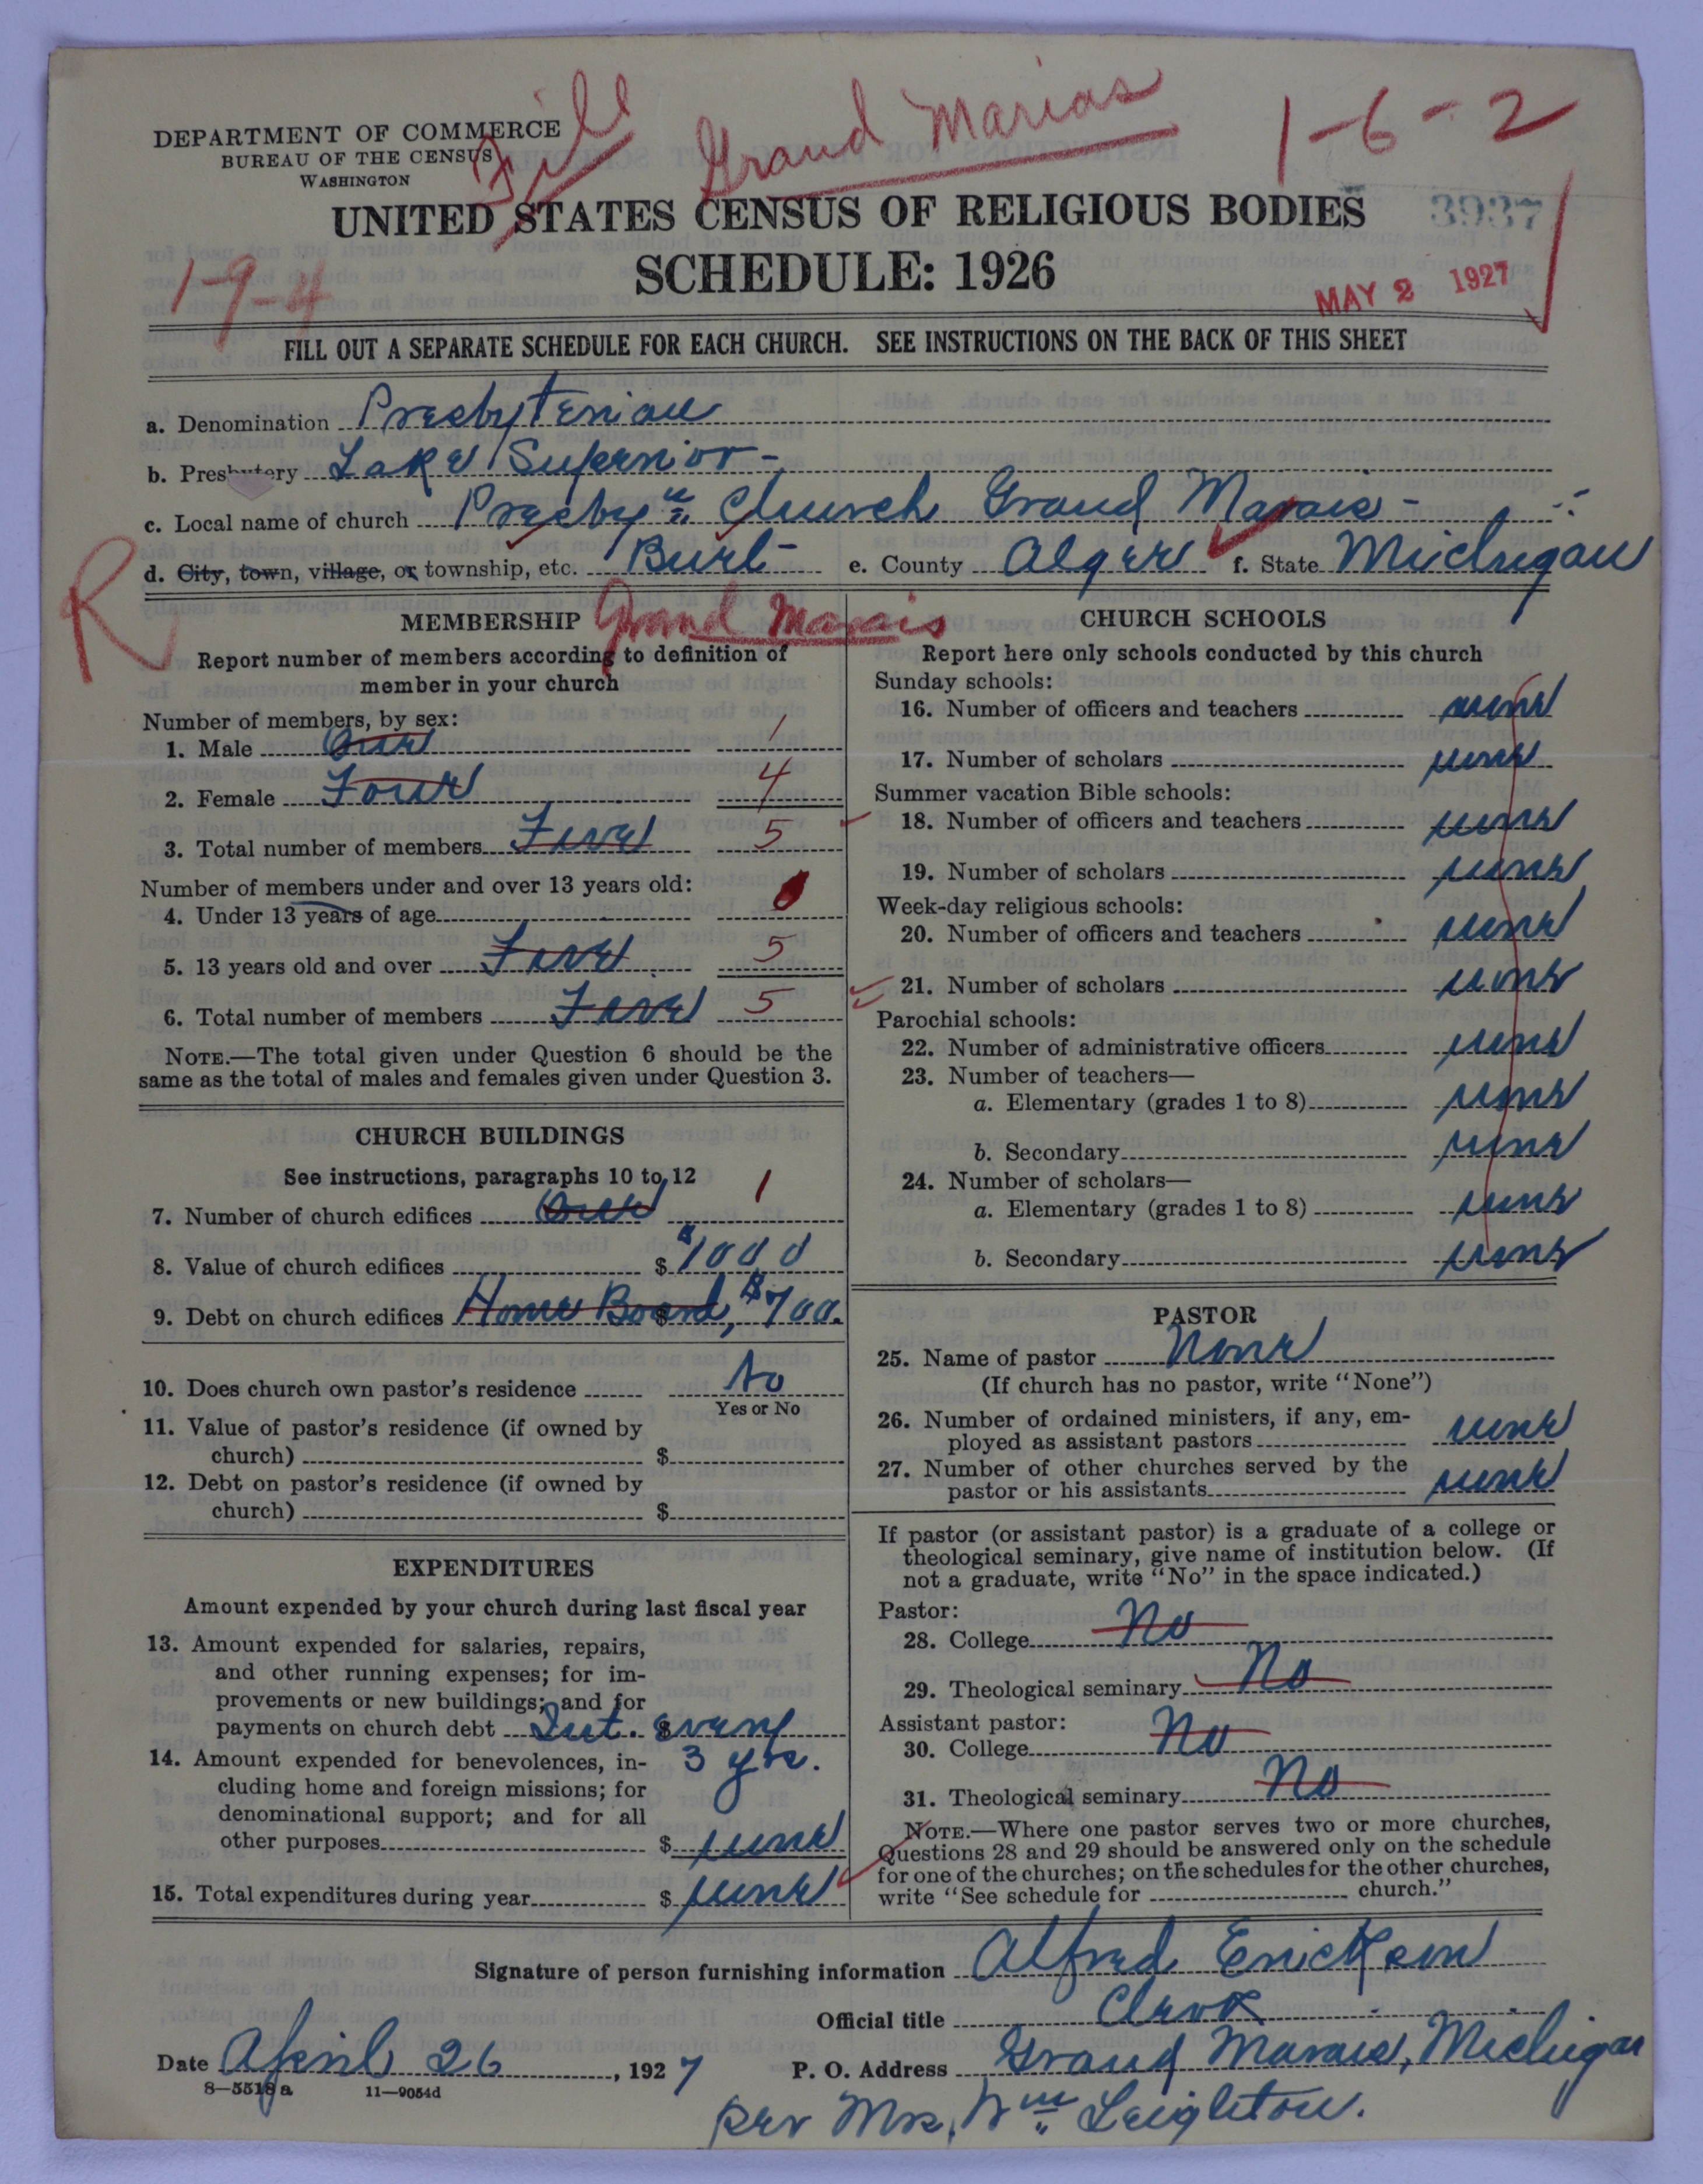 File
Grand Marias
1-6-2
DEPARTMENT OF COMMERCE
BUREAU OF THE CENSUS
WASHINGTON
UNITED STATES CENSUS OF RELIGIOUS BODIES
3937
SCHEDULE: 1926
1-9-4
MAY 2 1927
FILL OUT A SEPARATE SCHEDULE FOR EACH CHURCH. SEE INSTRUCTIONS ON THE BACK OF THIS SHEET
a. Denomination Presbyterian
b. Presbytery Lake Superior-
c. Local name of church Presbyn Church Grand Marais-
d. City, town, village, or township, etc. Burt- e. County Alger f. State Michigan
R
MEMBERSHIP Grand Marais
Report number of members according to definition of
member in your church
Number of members, by sex:
1. Male One 1
2. Female Four 4
3. Total number of members Five 5
Number of members under and over 13 years old:
4. Under 13 years of age
5. 13 years old and over Five 5
6. Total number of members Five 5
NOTE.—The total given under Question 6 should be the
same as the total of males and females given under Question 3.
CHURCH BUILDINGS
See instructions, paragraphs 10 to 12
7. Number of church edifices One 1
8. Value of church edifices $ $1000
9. Debt on church edifices Home Board, $ $700.
10. Does church own pastor's residence No
Yes or No
11. Value of pastor's residence (if owned by
church) $
12. Debt on pastor's residence (if owned by
church) $
EXPENDITURES
Amount expended by your church during last fiscal year
13. Amount expended for salaries, repairs,
and other running expenses; for im-
provements or new buildings; and for
payments on church debt Int. $ every
14. Amount expended for benevolences, in- 3 yrs.
cluding home and foreign missions; for
denominational support; and for all
other purposes $ none
15. Total expenditures during year $ none
CHURCH SCHOOLS
Report here only schools conducted by this church
Sunday schools:
16. Number of officers and teachers none
17. Number of scholars none
Summer vacation Bible schools:
18. Number of officers and teachers none
19. Number of scholars none
Week-day religious schools:
20. Number of officers and teachers none
21. Number of scholars none
Parochial schools:
22. Number of administrative officers none
23. Number of teachers—
a. Elementary (grades 1 to 8) none
b. Secondary none
24. Number of scholars—
a. Elementary (grades 1 to 8) none
b. Secondary none
PASTOR
25. Name of pastor None
(If church has no pastor, write "None")
26. Number of ordained ministers, if any, em-
ployed as assistant pastors none
27. Number of other churches served by the
pastor or his assistants none
If pastor (or assistant pastor) is a graduate of a college or
theological seminary, give name of institution below. (If
not a graduate, write "No" in the space indicated.)
Pastor:
28. College No
29. Theological seminary No
Assistant pastor:
30. College No
31. Theological seminary No
NOTE.—Where one pastor serves two or more churches,
Questions 28 and 29 should be answered only on the schedule
for one of the churches; on the schedules for the other churches,
write "See schedule for church."
Signature of person furnishing information Alfred Erickson
Official title Clerk
Date April 26, 1927 P. O. Address Grand Marais, Michigan
8—5518 a 11—9054d
per Mrs. Wm. Leighton.